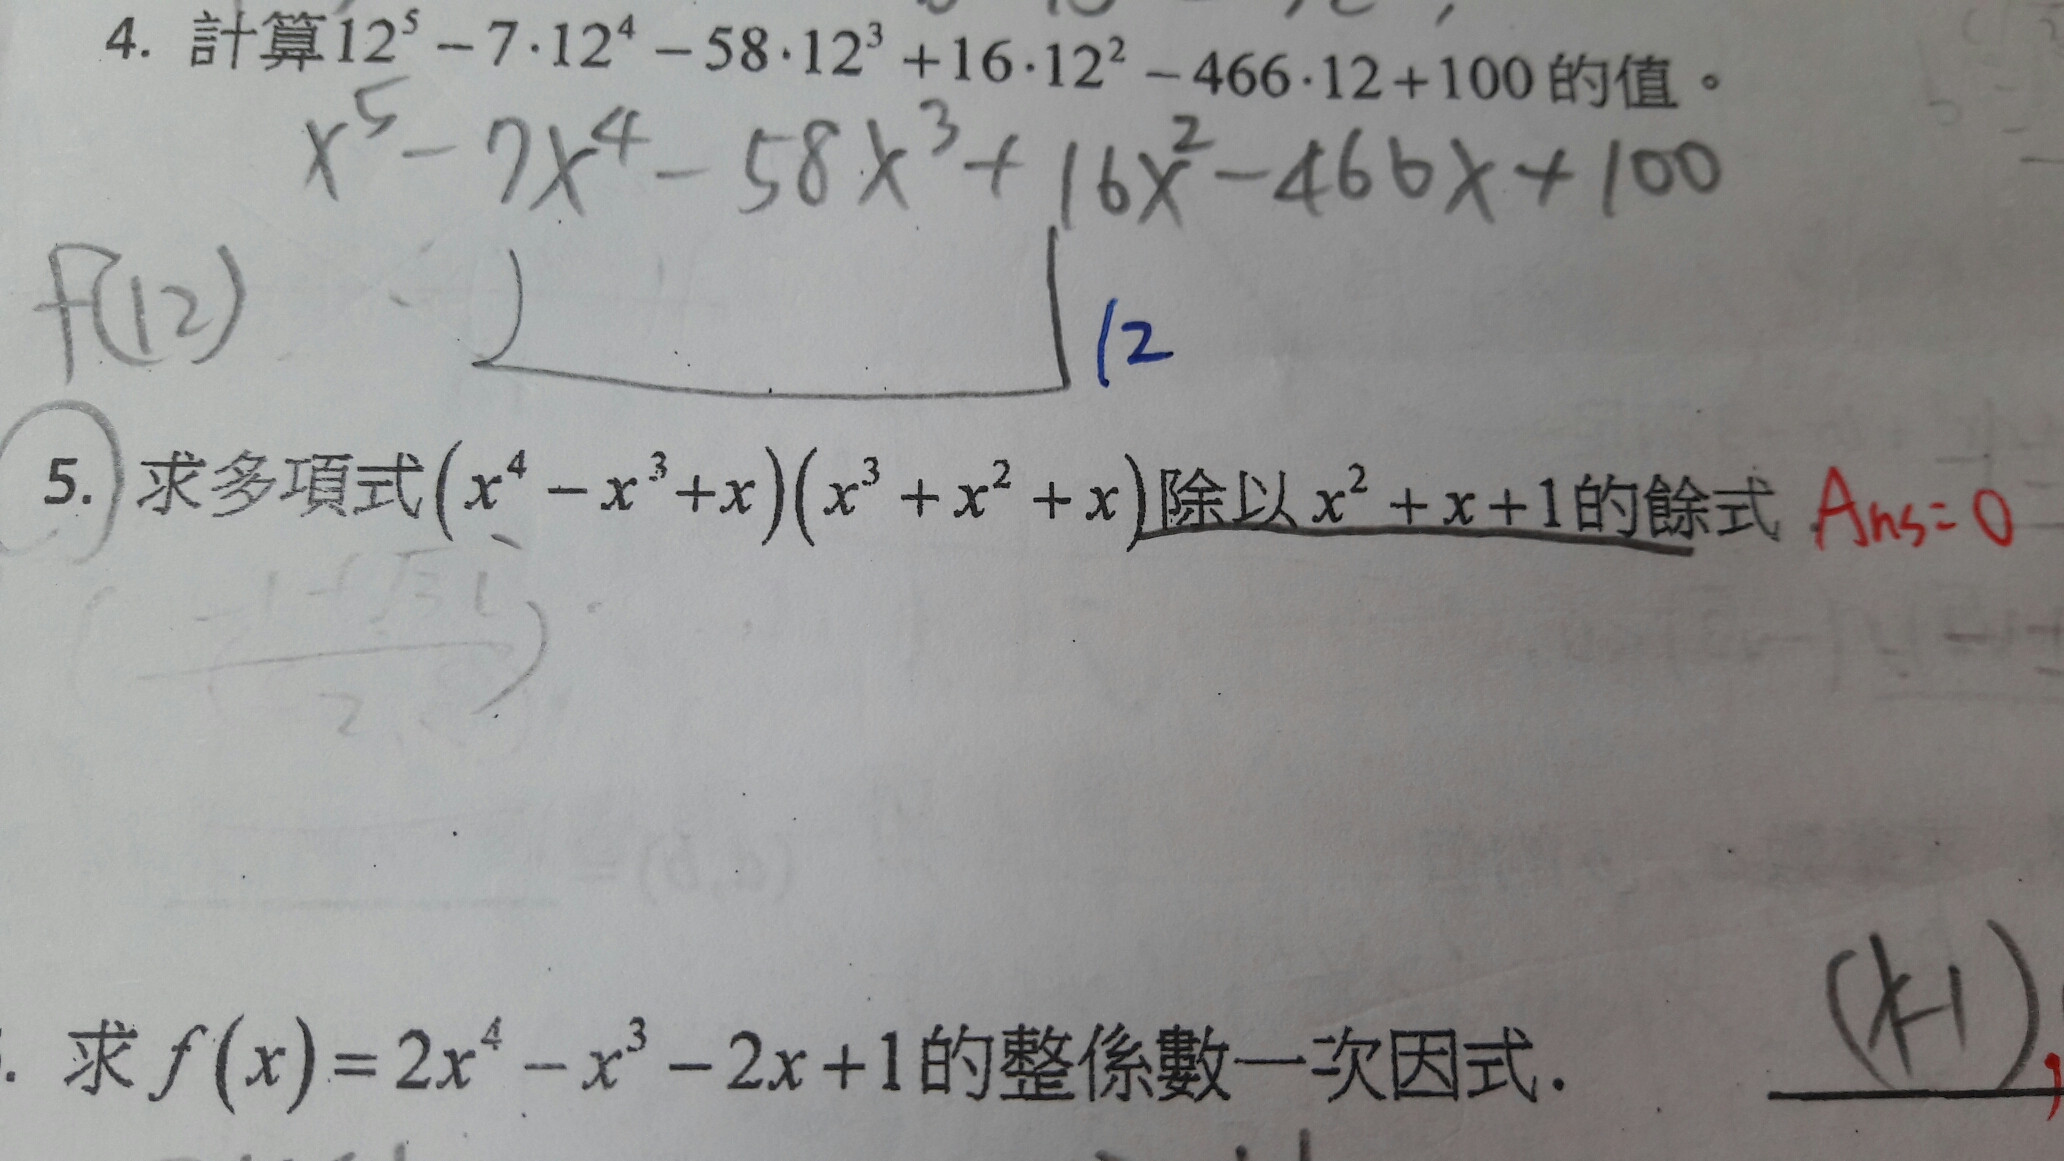 4. 計算12⁵－7·12⁴－58·12³+16·12²－466·12+100的值。
x⁵－7x⁴－58x³+16x²－466x+100
f(12)
12
5. 求多項式(x⁴－x³+x)(x³+x²+x)除以x²+x+1的餘式 Ans=0
2
(x-1),
. 求f(x)=2x⁴－x³－2x+1的整係數一次因式.